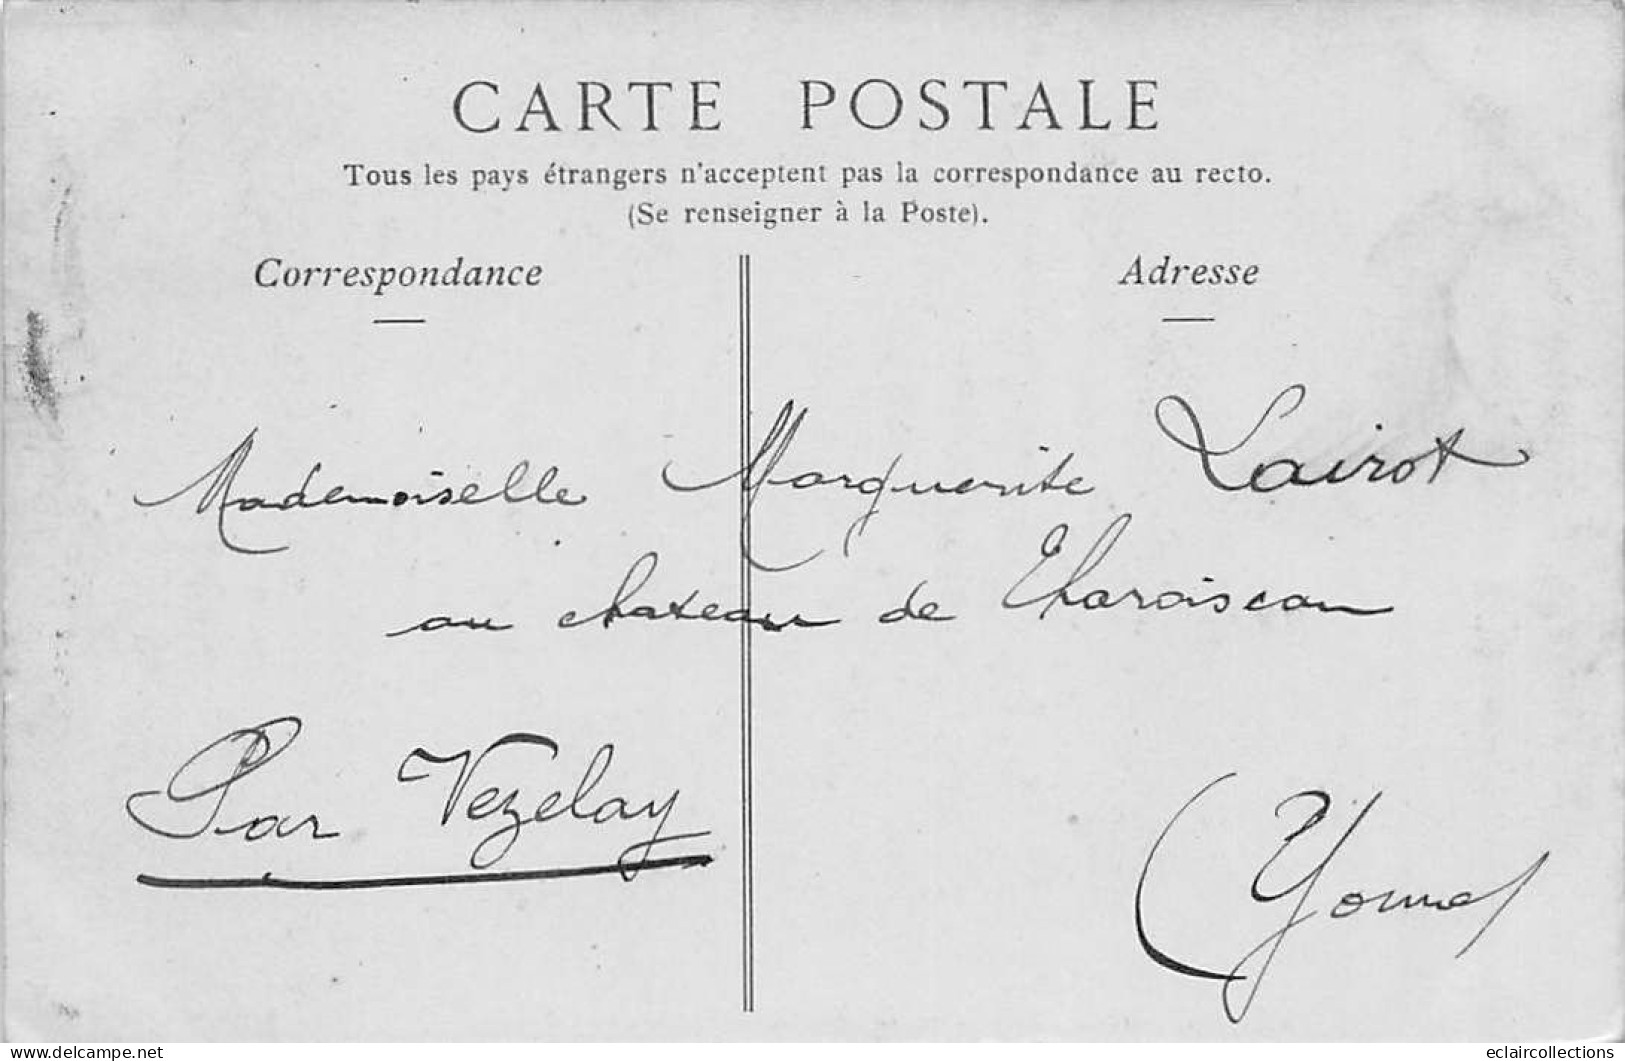 CARTE POSTALE
Tous les pays étrangers n'acceptent pas la correspondance au recto.
(Se renseigner à la Poste).
Correspondance
Adresse
Mademoiselle Marguerite Lairot
au chateau de
Par Vezelay
(Yonne)
delcampe.net
eclaircollections